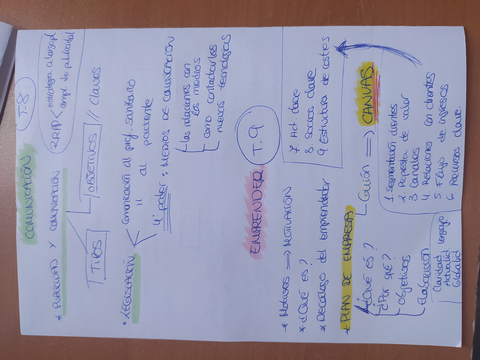 COMUNICACIÓN T.8
* PUBLICIDAD Y COMUNICACIÓN
RRPP
estrategia a largopl
campñ de publicidad
TIPOS
objetivos // claves
* NEGOCIACIÓN
comunicación al prof. sanitario
"
al paciente
4º poder: MEDIOS DE COMUNICACIÓN
Las relaciones con los medios
como contactarlos
nuevas tecnologías
EMPRENDER T.9
* Motivos => MOTIVACIÓN
* ¿QUÉ ES?
* Decálogo del emprendedor
* PLAN DE EMPRESA
¿Qué es?
¿Por qué?
objetivos
elaboración
Claridad
Globalid
Guión => CANVAS
1 Segmentación clientes
2 Propuesta de valor
3 Canales
4 Relaciones con clientes
5 Flujo de ingresos
6 Recursos clave
7 Act. clave
8 Socios clave
9 Estructura de costes